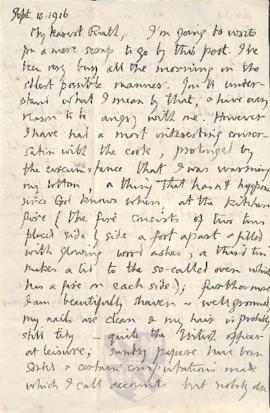 Sept. 10. 1916
My dearest Ruth, I'm going to write
for a mere scrap to go by this post. I've
been very busy all the morning in the
idlest possible manner. You'll under-
stand what I mean by that, & have every
reason to be angry with me. However
I have had a most interesting conver-
sation with the cook, prolonged by
the circumstance that I was warming
my bottom, a thing that hasn't happened
since God knows when, at the kitchen
fire (the fire consists of two tins
placed side by side a foot apart & filled
with glowing wood ashes; a third tin
makes a lid to the so-called oven which
has a fire on each side); furthermore
I am beautifully shaven & well groomed
my nails are clean & my hair is probably
still tidy – quite the British officer
at leisure; sundry papers have been
sorted & certain computations made
which I call accounts but nobody else